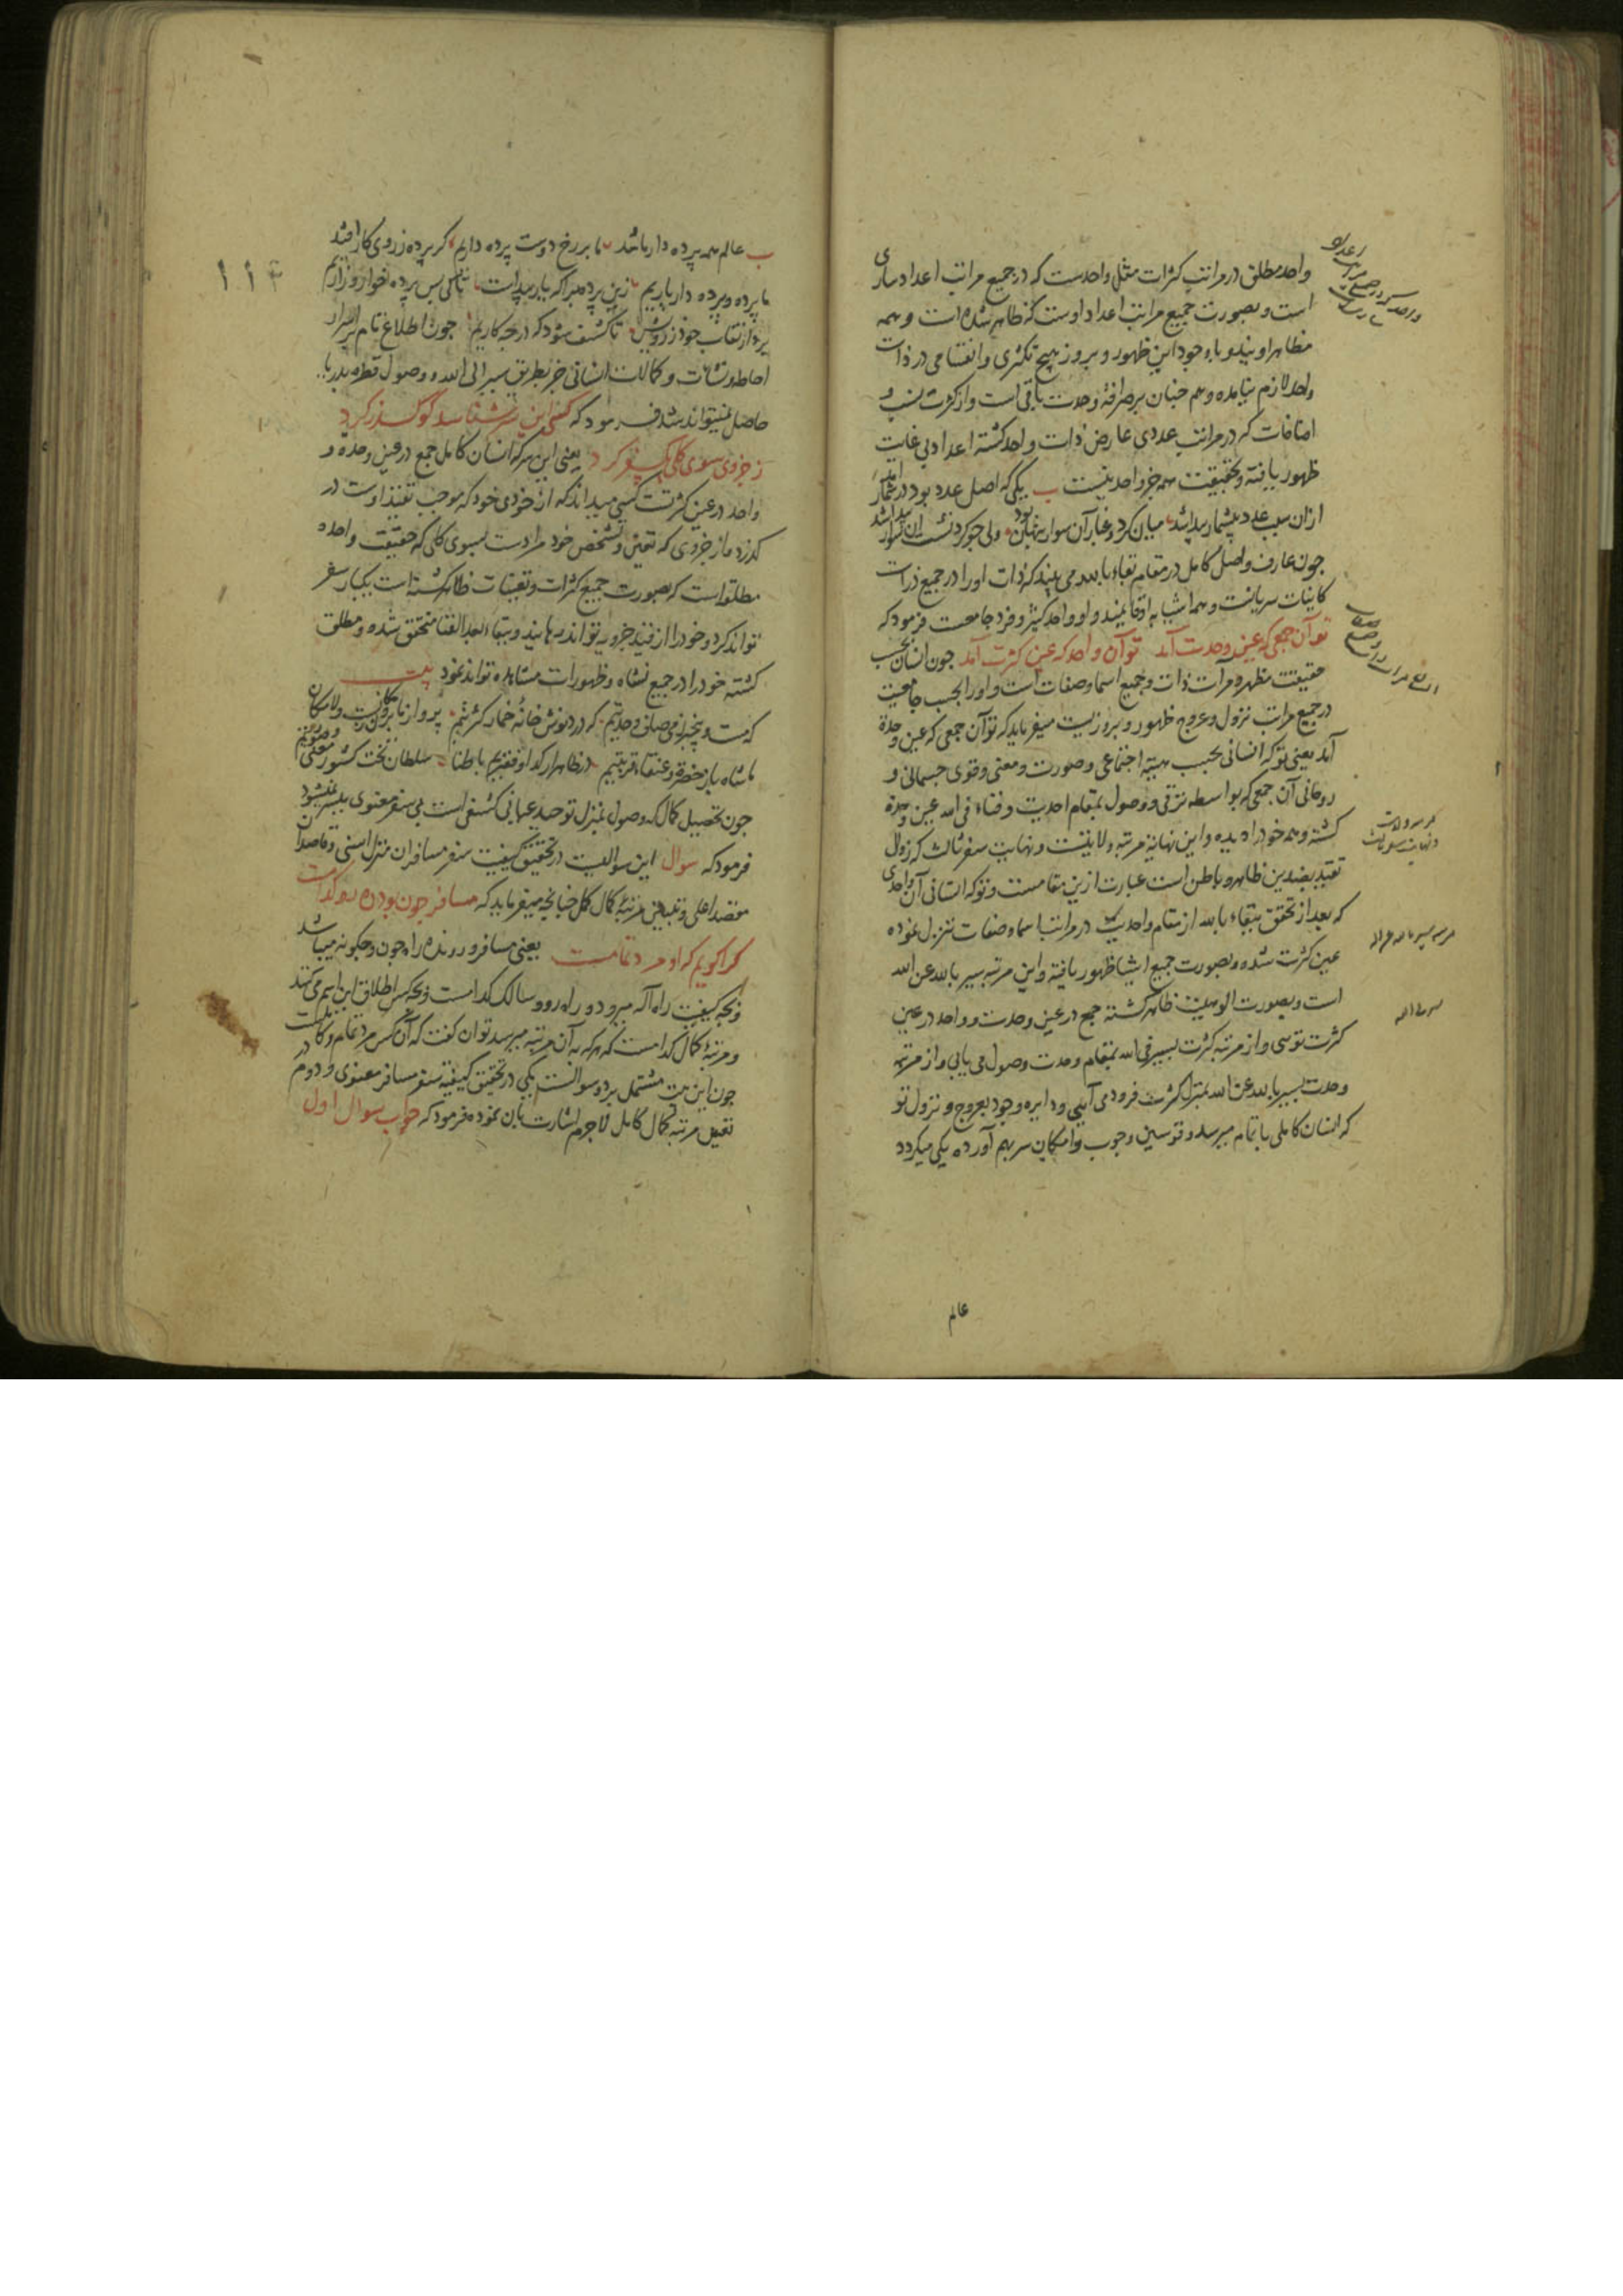 واحد مطلق در مراتب کثرات مثل واحدست که در جمیع مراتب اعداد ساری
است و بصورت جمیع مراتب اعداد اوست که ظاهر شده است و همه
مظاهر اویند و با وجود این ظهور و بروز هیچ تکثری و انقسامی در ذات
واحد لازم نیامده و هم چنان بر صرافة وحدت باقی است و از کثرت نسب و
اضافات که در مراتب عددی عارض ذات واحد کشته اعداد بی غایت
ظهور یافته و بحقیقت همه جز واحد نیست ب یکی که اصل عدد بود در شمار آمد
ازان سبب عدد بیشمار پیدا شد میان کرد و غبار آن سوار پنهان بود ولی چو کرد نشست آن سوار پیدا شد
جون عارف واصل کامل در مقام بقاء بالله می بیند که ذات او را در جمیع ذرات
کاینات سریانست و همه اشیا به او قایمند و او واحد کثیر و فرد جامعست فرمود که
تو آن جمعی که عین وحدت آمد تو آن واحد که عین کثرت آمد جون انسان بحسب
حقیقت مظهر و مرآت ذات و جمیع اسما و صفات است و او را بحسب جامعیت
در جمیع مراتب نزول و عروج ظهور و بروزیست میفرماید که تو آن جمعی که عین وحدة
آمد یعنی تو که انسانی بحسب هیئة اجتماعی و صورت و معنی و قوی جسمانی و
روحانی آن جمعی که بواسطه ترقی و وصول بمقام احدیت و فناء فی الله عین وحدة
کشته و همه خود را دیده و این نهایة مرتبه ولایتست و نهایت سفر ثالث که زوال
تقید بضدین ظاهر و باطن است عبارت ازین مقامست و تو که انسانی آن واحدی
که بعد از تحقق ببقاء بالله از مقام واحدیت در مراتب اسما و صفات تنزل نموده
عین کثرت شده و بصورت جمیع اشیا ظهور یافته و این مرتبه سیر بالله عن الله
است و بصورت الوهیت ظاهر کشته جمع در عین وحدت و واحد در عین
کثرت توی و از مرتبه کثرت بسیر فی الله بمقام وحدت وصول می یابی و از مرتبه
وحدت بسیر بالله عن الله بمنزل کثرت فرود می آیی و دایره وجود بعروج و نزول تو
که انسان کاملی باتمام میرسد و قوسین وجوب و امکان سر بهم آورده یکی میکردد
عالم
ب عالم همه پرده دار باشد ما بر رخ دوست پرده داریم کر پرده ز روی کار افتد
ما پرده و پرده دار یاریم زین پرده مبرا که یار پیداست تا کی پس پرده خوار و زاریم
بردار نقاب خود ز رویش تا کشف شود که در چه کاریم جون اطلاع تام بر اسرار
احاطه و نشآت و کمالات انسانی جز بطریق سیر الی الله و وصول قطره بدریا
حاصل نمیتواند شد فرمود که کسی این سر شناسد کو کذر کرد
ز جزوی سوی کلی یک سفر کرد یعنی این سر که انسان کامل جمع در عین وحدة و
واحد در عین کثرتست کسی میداند که از خودی خود که موجب تقید اوست در
کذرد و از جزوی که تعین و تشخص خود مرادست بسوی کلی که حقیقت واحده
مطلقه است که بصورت جمیع کثرات و تعینات ظاهر کشته است یکبار سفر
تواند کرد و خود را از قید جزویه تواند رهانید و ببقاء بعد الفنا متحقق شده و مطلق
کشته خود را در جمیع نشاه و ظهورات مشاهده تواند نمود بیت
که مست و بیخبر از می وصال وحدتیم که درد نوش خانهٔ خمار کثرتیم پرواز ما برون ز مکانست و لامکان
ما شاه باز حضرة و عنقاء قربتیم در ظاهر ار کدا و فقیریم باطنا سلطان تخت کشور معنی و صورتیم
جون تحصیل کمال که وصول بمنزل توحید عیانی کشفی است بی سفر معنوی میسر نمیشود
فرمود که سوال این سوالیست در تحقیق کیفیت سفر مسافران منزل اسنی و قاصدان
مقصد اعلی و تعیین مرتبهٔ کمال کمل چنانچه میفرماید که مسافر جون بود رهرو کدامست
کرا کویم که او مرد تمامست یعنی مسافر و رونده راه جون و چکونه میباشد
و بچه کیفیت راه اله میرود و راه رو و سالک کدامست و بچه کس اطلاق این اسم می کنند
و مرتبهٔ کمال کدامست که هر که به آن مرتبه میرسد توان کفت که آن کس مرد تمام و کاملست
جون این بیت مشتمل بر دو سوالست یکی در تحقیق کیفیة سفر مسافر معنوی و دوم در
تعین مرتبه کمال کامل لاجرم اشارت بآن نموده فرمود که جواب سوال اول